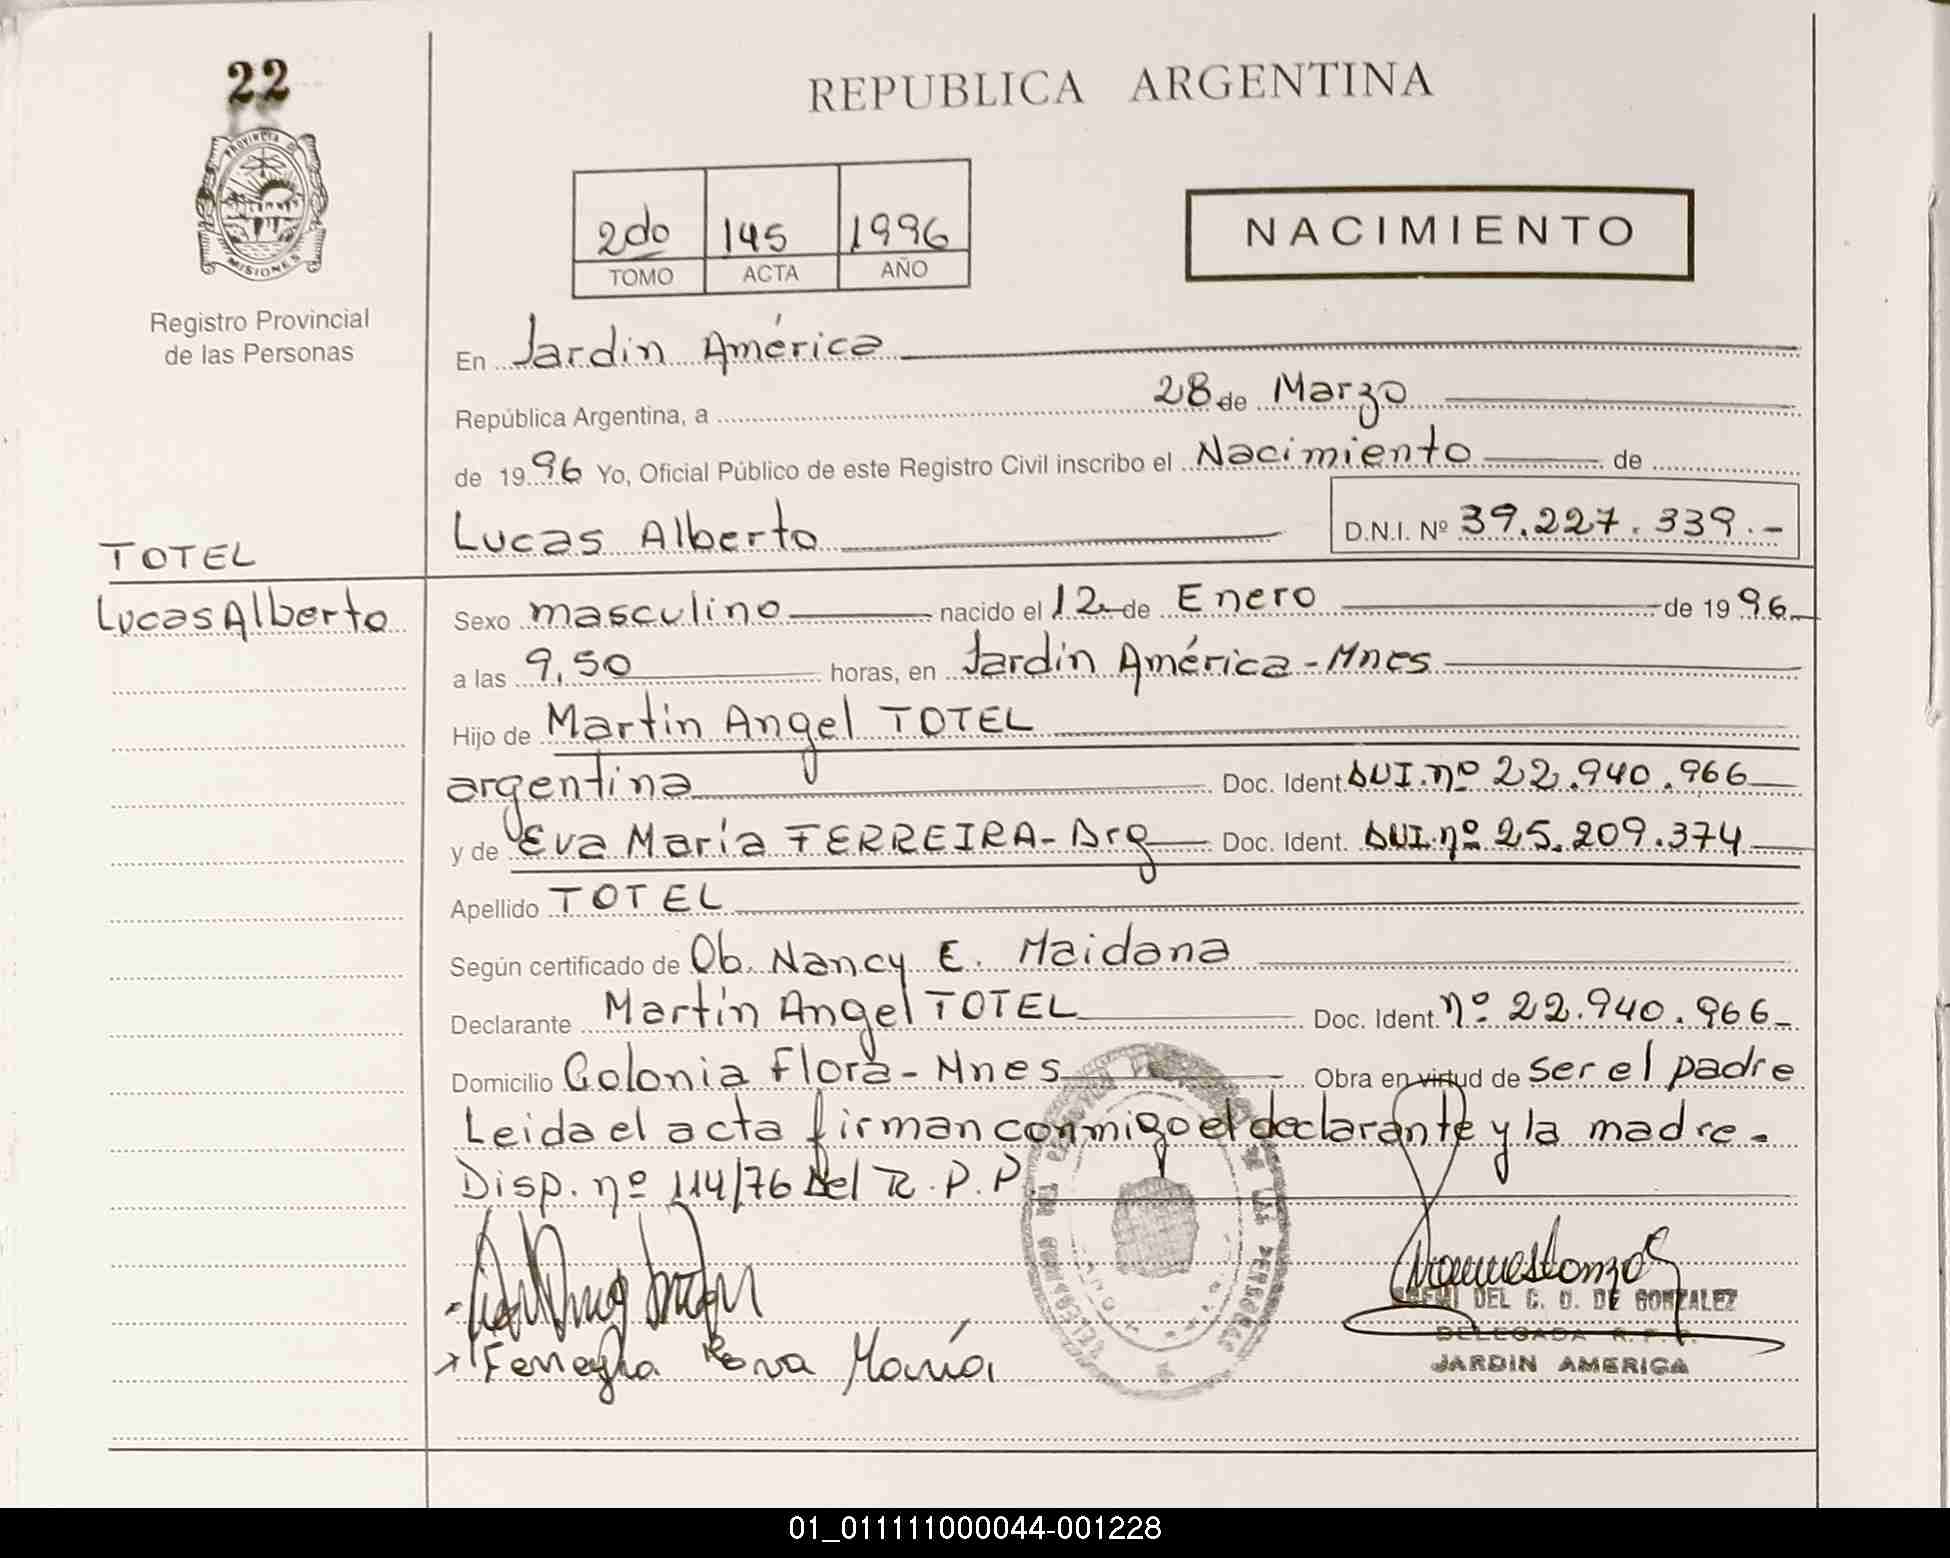 22
PROVINCIA D
MISIONES
Registro Provincial
de las Personas
REPUBLICA ARGENTINA
2do 145 1996
TOMO ACTA AÑO
NACIMIENTO
En Jardín América
República Argentina, a 28 de Marzo
de 1996 Yo, Oficial Público de este Registro Civil inscribo el Nacimiento de
Lucas Alberto D.N.I. Nº 39.227.339.-
TOTEL
Lucas Alberto
Sexo masculino nacido el 12 de Enero de 1996
a las 9,50 horas, en Jardín América - Mnes
Hijo de Martín Angel TOTEL
argentina Doc. Ident. DUI. nº 22.940.966
y de Eva María FERREIRA - Arg Doc. Ident. DUI. nº 25.209.374
Apellido TOTEL
Según certificado de Ob. Nancy E. Maidana
Declarante Martín Angel TOTEL Doc. Ident. nº 22.940.966
Domicilio Colonia Flora - Mnes Obra en virtud de ser el padre
Leida el acta firman conmigo el declarante y la madre.
Disp. nº 114/76 del R.P.P.
DEL C. D. DE GONZALEZ
DELEGADA R.P.P.
JARDIN AMERICA
María
01_011111000044-001228